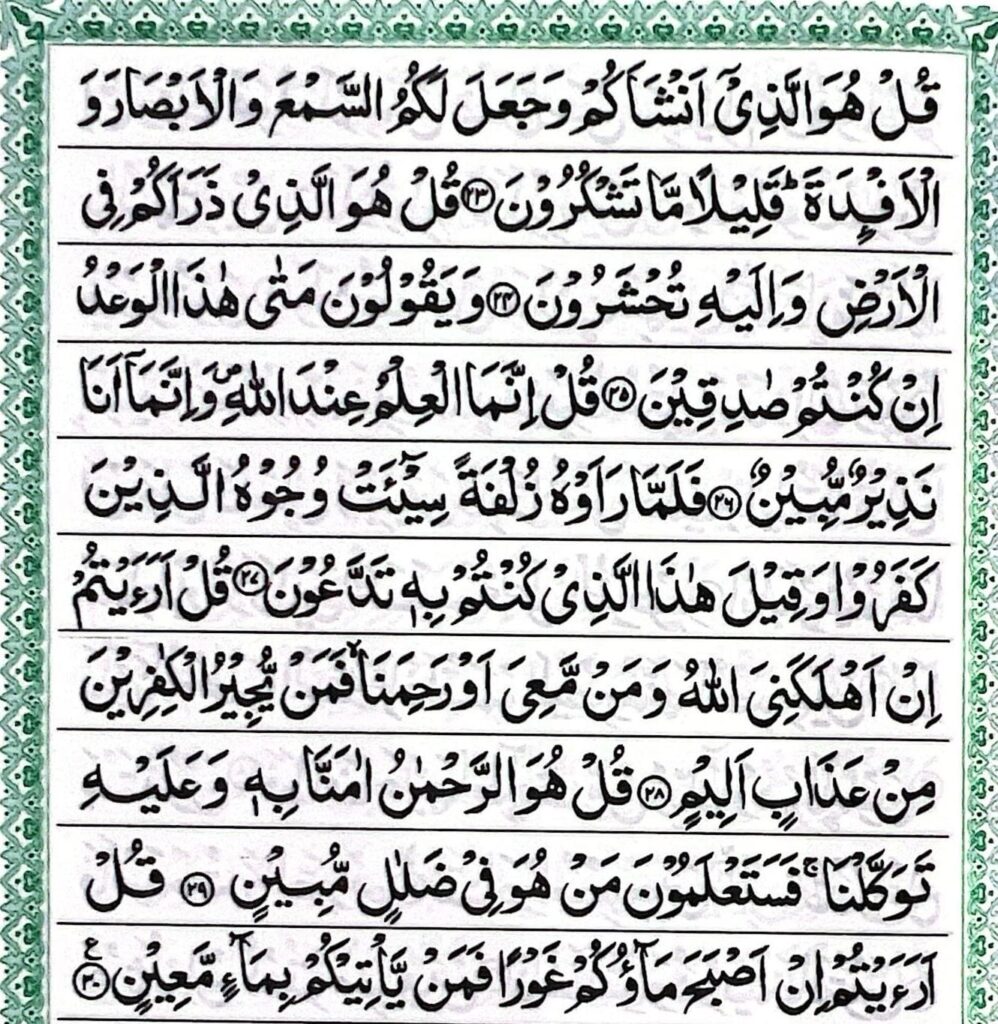 قُلْ هُوَ الَّذِیْۤ اَنْشَاَكُمْ وَ جَعَلَ لَكُمُ السَّمْعَ وَ الْاَبْصَارَ وَ
الْاَفْـِٕدَةَ ؕ قَلِیْلًا مَّا تَشْكُرُوْنَ ﴿۲۳﴾ قُلْ هُوَ الَّذِیْ ذَرَاَكُمْ فِی
الْاَرْضِ وَ اِلَیْهِ تُحْشَرُوْنَ ﴿۲۴﴾ وَ یَقُوْلُوْنَ مَتٰی هٰذَا الْوَعْدُ
اِنْ كُنْتُمْ صٰدِقِیْنَ ﴿۲۵﴾ قُلْ اِنَّمَا الْعِلْمُ عِنْدَ اللّٰهِ ۪ وَ اِنَّمَاۤ اَنَا
نَذِیْرٌ مُّبِیْنٌ ﴿۲۶﴾ فَلَمَّا رَاَوْهُ زُلْفَةً سِیْٓـَٔتْ وُجُوْهُ الَّذِیْنَ
كَفَرُوْا وَ قِیْلَ هٰذَا الَّذِیْ كُنْتُمْ بِهٖ تَدَّعُوْنَ ﴿۲۷﴾ قُلْ اَرَءَیْتُمْ
اِنْ اَهْلَكَنِیَ اللّٰهُ وَ مَنْ مَّعِیَ اَوْ رَحِمَنَا ۙ فَمَنْ یُّجِیْرُ الْكٰفِرِیْنَ
مِنْ عَذَابٍ اَلِیْمٍ ﴿۲۸﴾ قُلْ هُوَ الرَّحْمٰنُ اٰمَنَّا بِهٖ وَ عَلَیْهِ
تَوَكَّلْنَا ۚ فَسَتَعْلَمُوْنَ مَنْ هُوَ فِیْ ضَلٰلٍ مُّبِیْنٍ ﴿۲۹﴾ قُلْ
اَرَءَیْتُمْ اِنْ اَصْبَحَ مَآؤُكُمْ غَوْرًا فَمَنْ یَّاْتِیْكُمْ بِمَآءٍ مَّعِیْنٍ ﴿۳۰﴾ ع